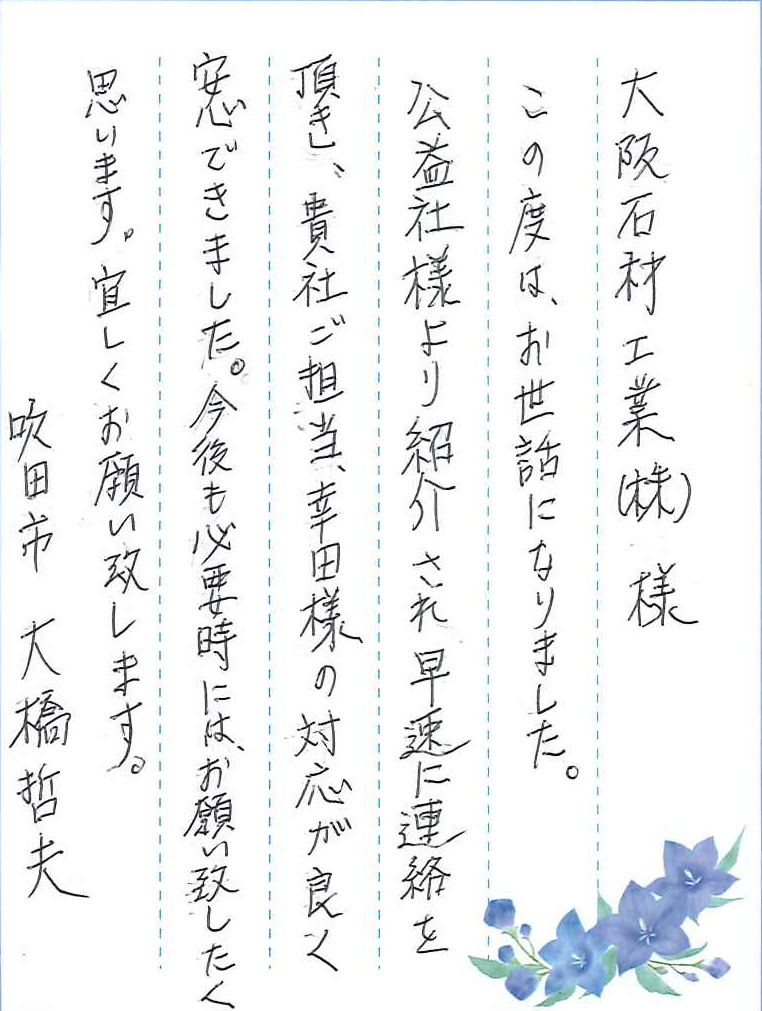 大阪石材工業(株)様
この度は、お世話になりました。
公益社様より紹介され早速に連絡を
頂きし、貴社ご担当、幸田様の対応が良く
安心できました。今後も必要時には、お願い致したく
思います。宜しくお願い致します。
吹田市 大橋哲夫